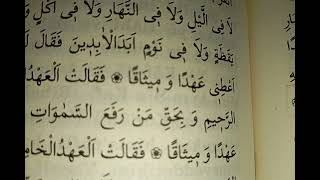 لَا فِى الَّيْلِ وَلَا فِى النَّهَارِ وَلَا فِى اَكْلٍ وَلَا
يَقَظَةٍ وَلَا فِى نَوْمٍ اَبَدَ الْاٰبِدِينَ فَقَالَ لَهَا
اَعْطِنِى عَهْدًا وَ مِيثَاقًا ❁ فَقَالَتْ اَلْعَهْدُ
الرَّحِيمِ وَ بِحَقِّ مَنْ رَفَعَ السَّمٰوَاتِ
عَهْدًا وَ مِيثَاقًا ❁ فَقَالَتْ اَلْعَهْدُ الْخَامِ